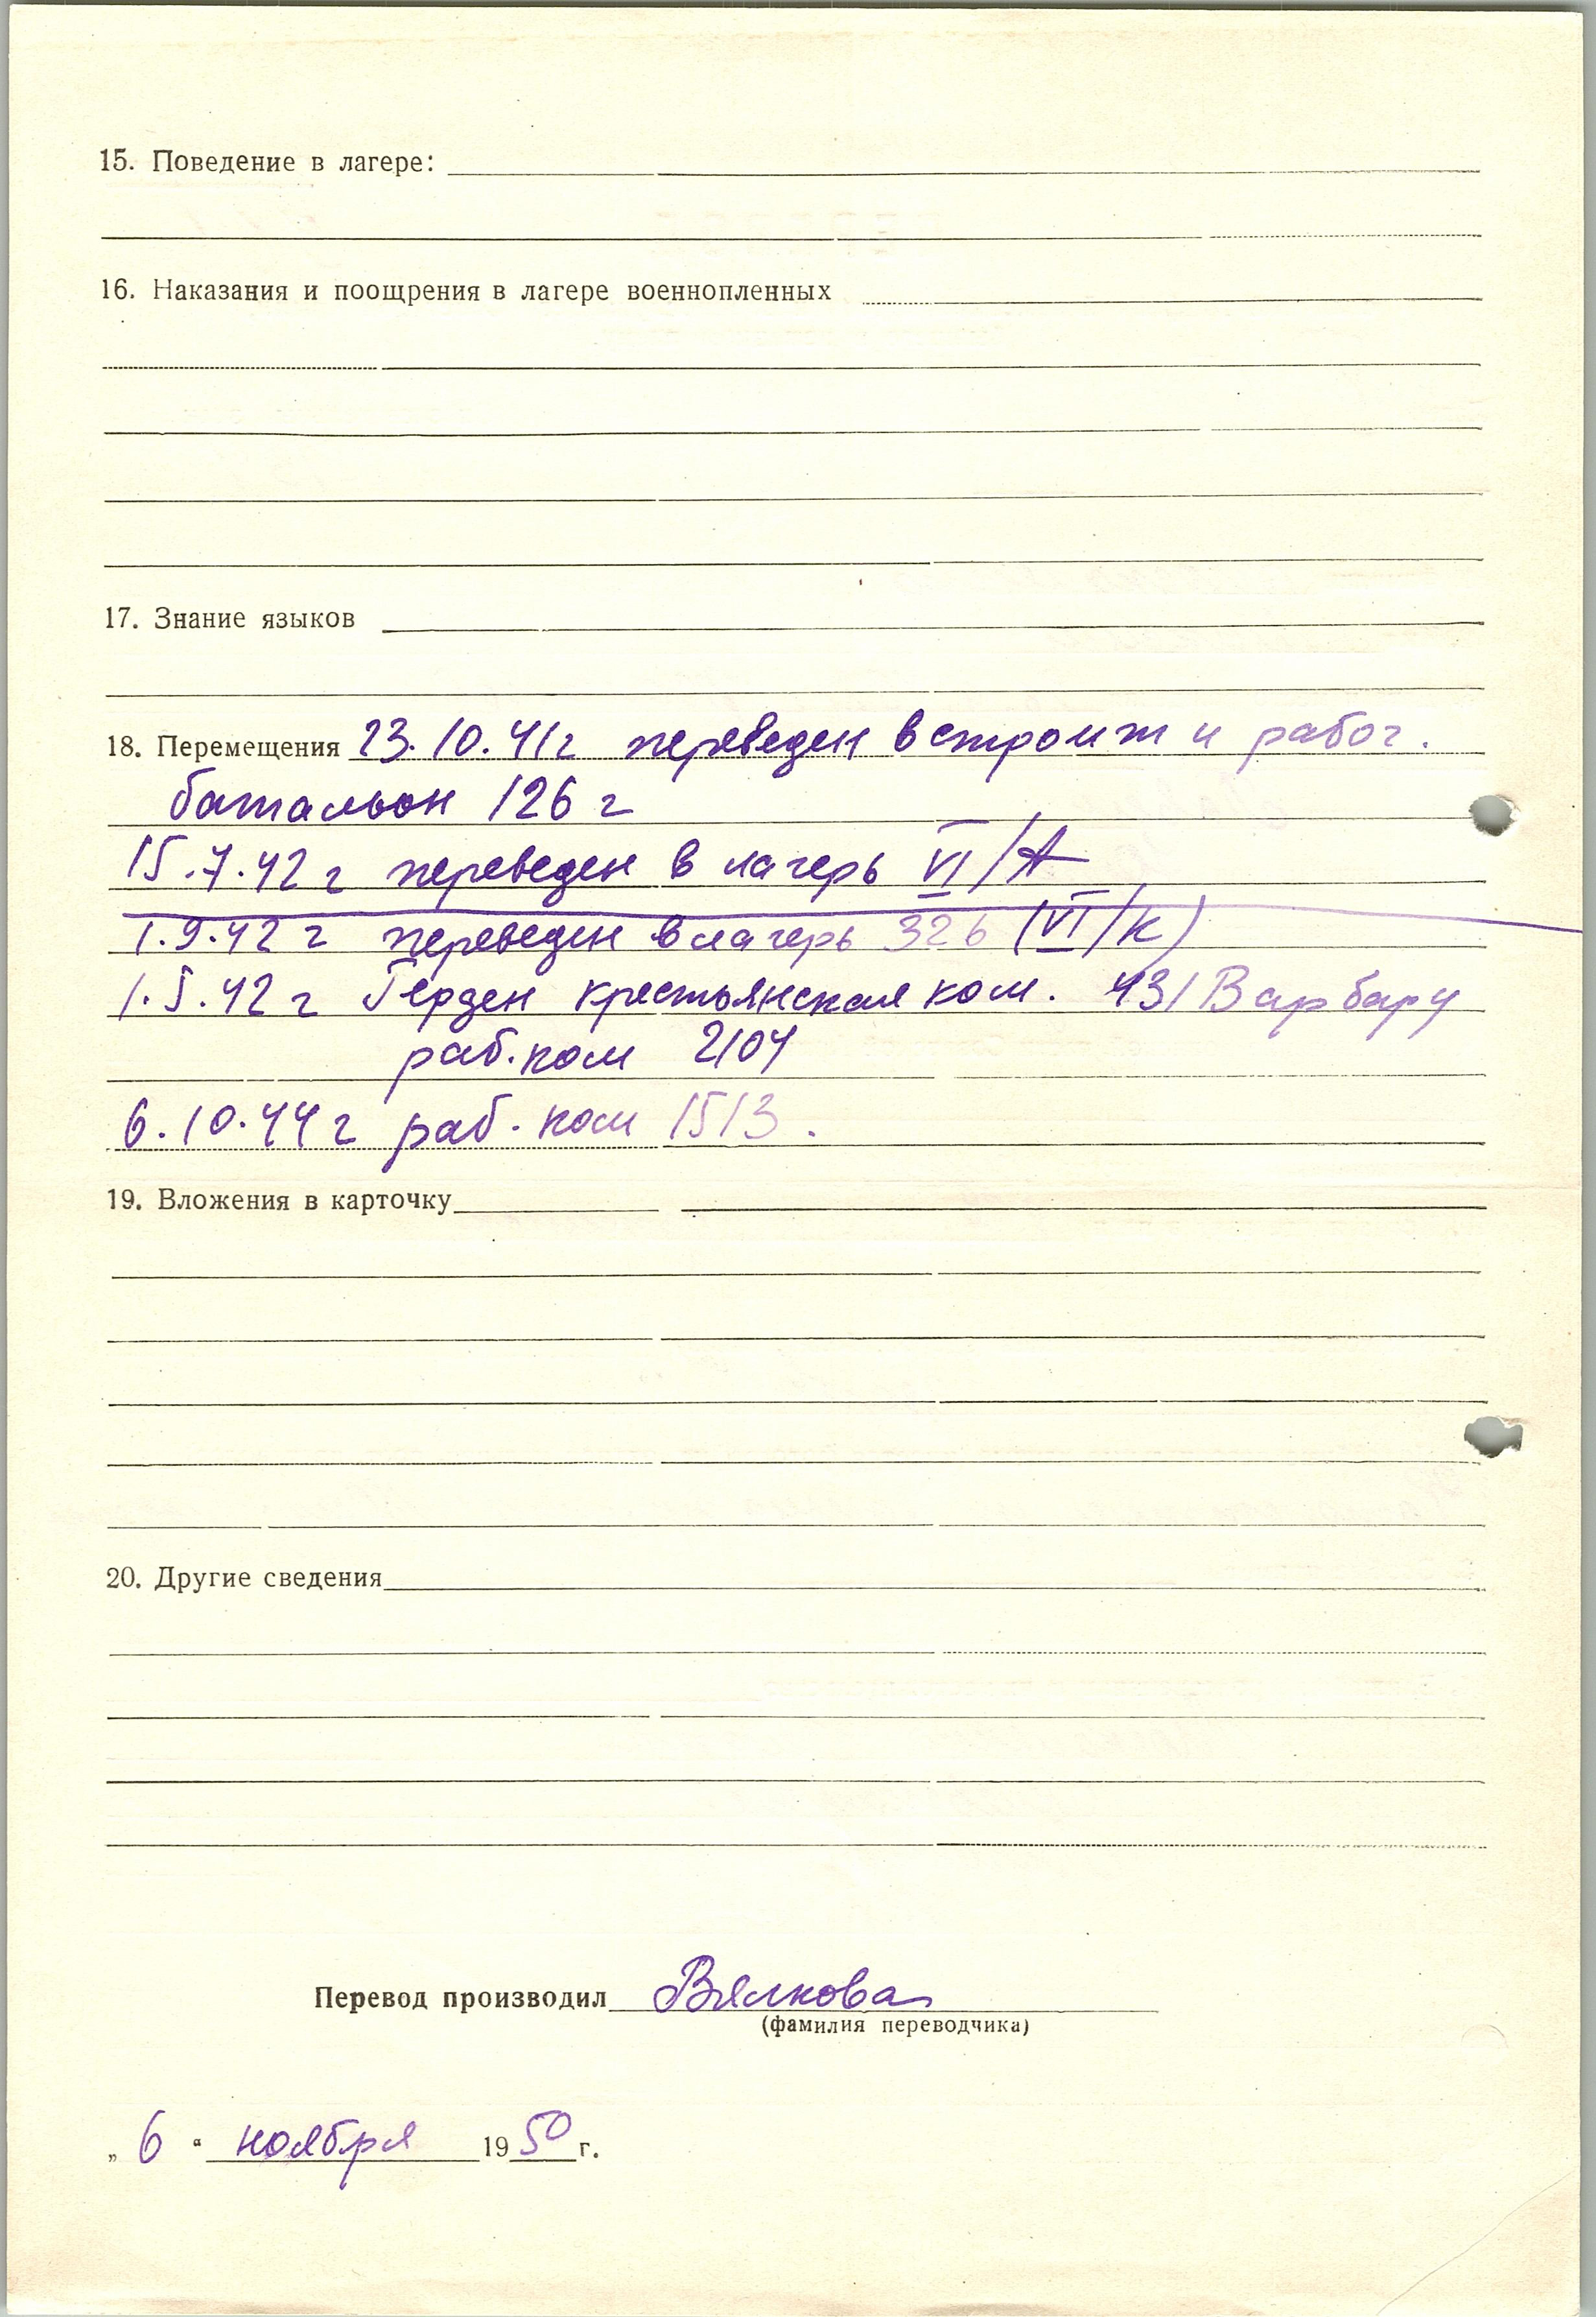 15. Поведение в лагере:
16. Наказания и поощрения в лагере военнопленных
17. Знание языков
18. Перемещения 23.10.41 г переведен в строит и рабоч.
батальон 126 г
15.7.42 г переведен в лагерь VI/А
1.9.42 г переведен в лагерь 326 (VI/К)
1.5.42 г Герден крестьянская ком. 431 Варбару
раб. ком 2104
6.10.44 г раб. ком 1513.
19. Вложения в карточку
20. Другие сведения
Перевод производил Вялкова
(фамилия переводчика)
„ 6 “ ноября 1950 г.